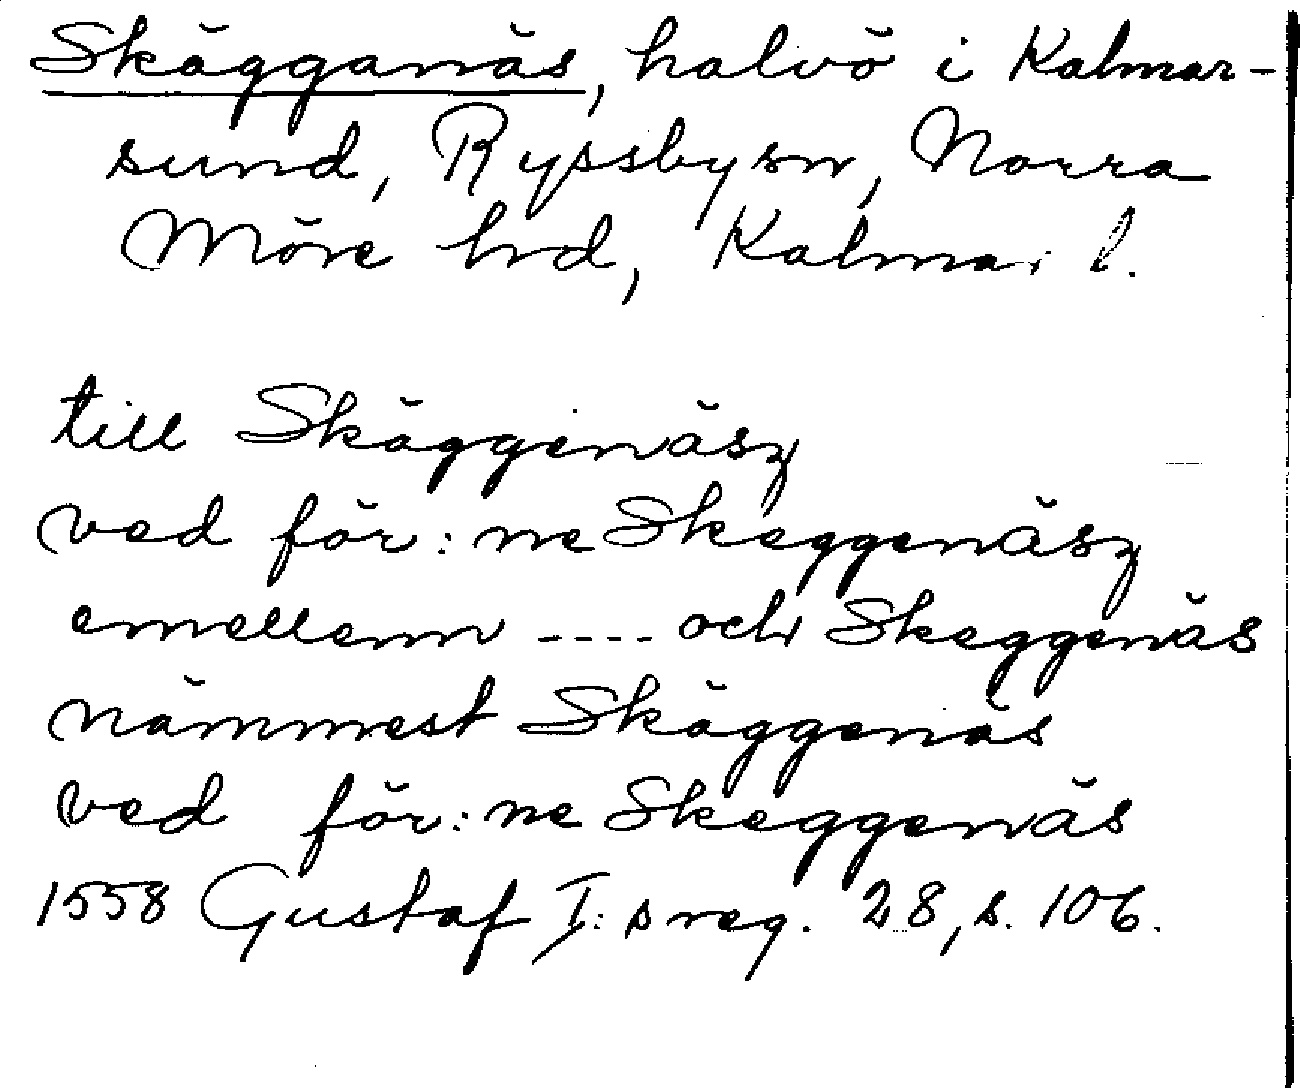 Skäggenäs, halvö i Kalmar-
sund, Ryssby sn, Norra
Möre hd, Kalmar l.
till Skäggenäsz
ved för:ne Skeggenäsz
emellenn ---- och Skeggenäs
nämmest Skäggenäs
ved för:ne Skeggenäs
1558 Gustaf I:s reg. 28, s. 106.